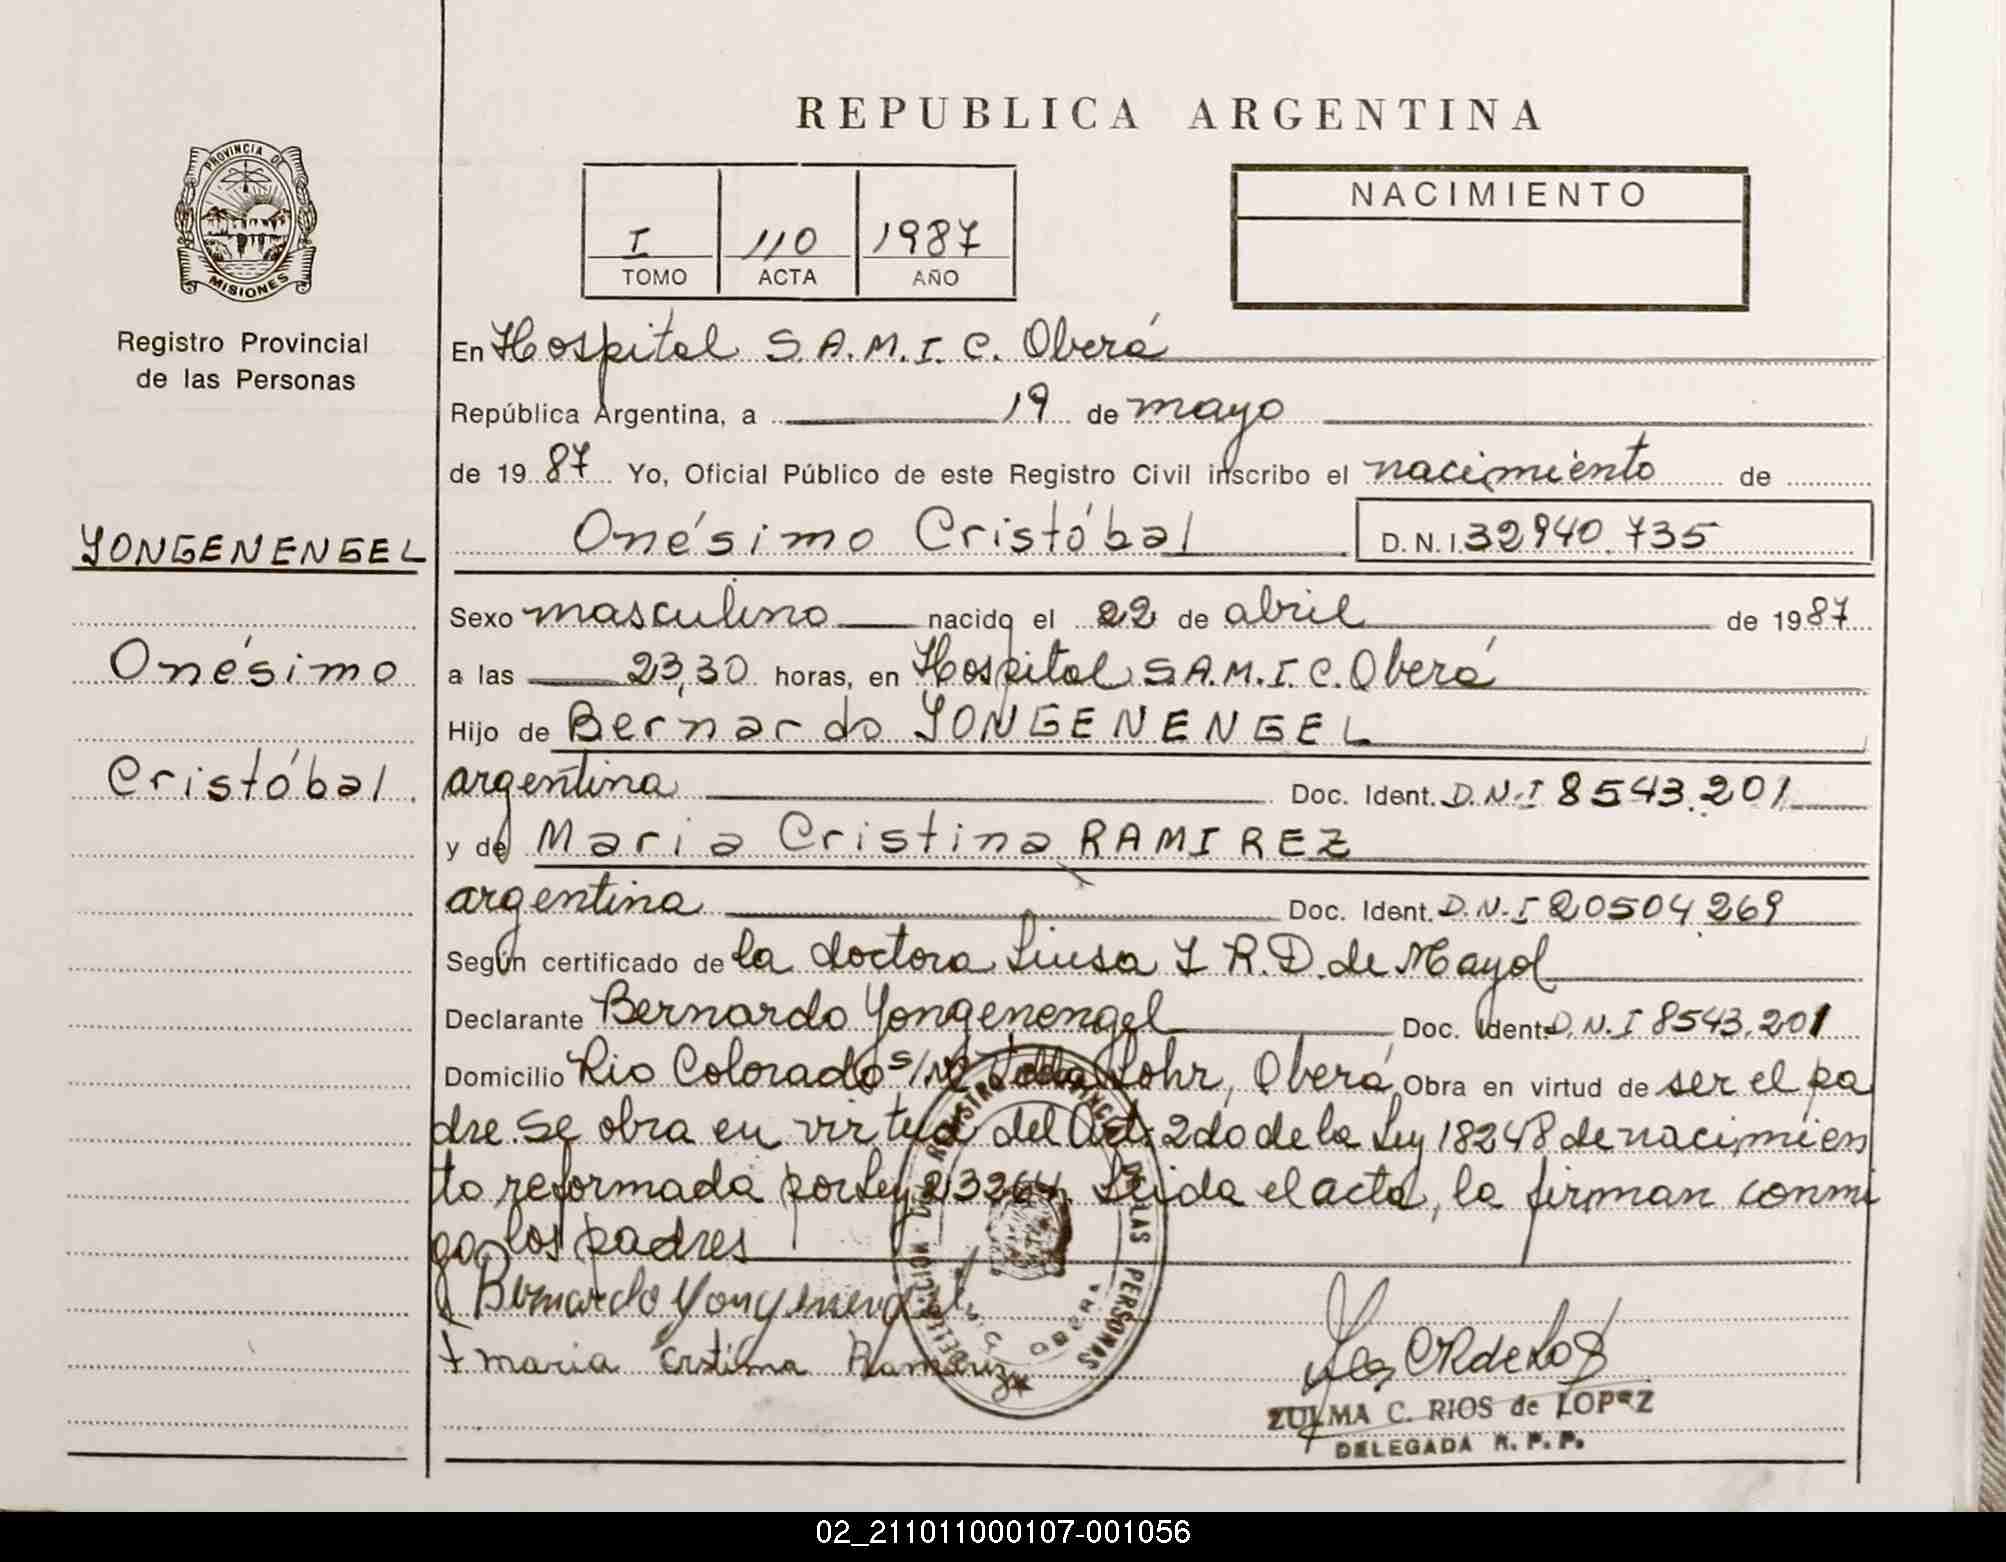 REPUBLICA ARGENTINA
PROVINCIA DE
MISIONES
Registro Provincial
de las Personas
I 110 1987
TOMO ACTA AÑO
NACIMIENTO
En Hospital S.A.M.I.C. Oberá
República Argentina, a 19 de mayo
de 1987 Yo, Oficial Público de este Registro Civil inscribo el nacimiento de
YONGENENGEL
Onésimo Cristóbal D.N.I. 32940.735
Sexo masculino nacido el 22 de abril de 1987
Onésimo
a las 23,30 horas, en Hospital S.A.M.I.C. Oberá
Hijo de Bernardo YONGENENGEL
Cristóbal
argentina Doc. Ident. D.N.I 8543.201
y de Maria Cristina RAMIREZ
argentina Doc. Ident. D.N.I 20504.269
Según certificado de la doctora R.D. de Mayol
Declarante Bernardo Yongenengel Doc. Ident. D.N.I 8543.201
Domicilio Rio Colorado s/nº Lohr, Oberá Obra en virtud de ser el pa
dre. Se obra en virtud del Art. 2do de la Ley 18248 de nacimien
to reformada por Ley 23264. Leida el acta, la firman conmi
go los padres
Bernardo Yongenengel
maria Ramirez
REGISTRO PROVINCIAL DE LAS PERSONAS
DELEGACION
OBERA
ZULMA C. RIOS de LOPEZ
DELEGADA R. P. P.
02_211011000107-001056